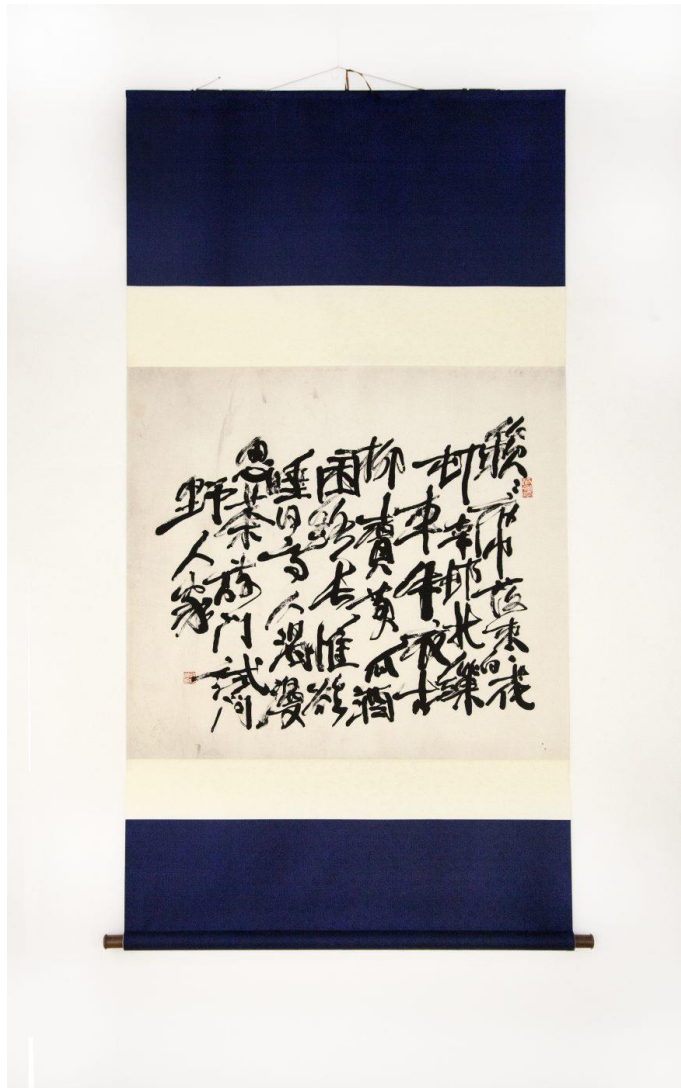 簌々衣巾落棗花
村南邨北繰
車牛衣古
柳賣黃瓜酒
困路長惟欲
睡日高人渴漫
思茶敲門試問
野人家